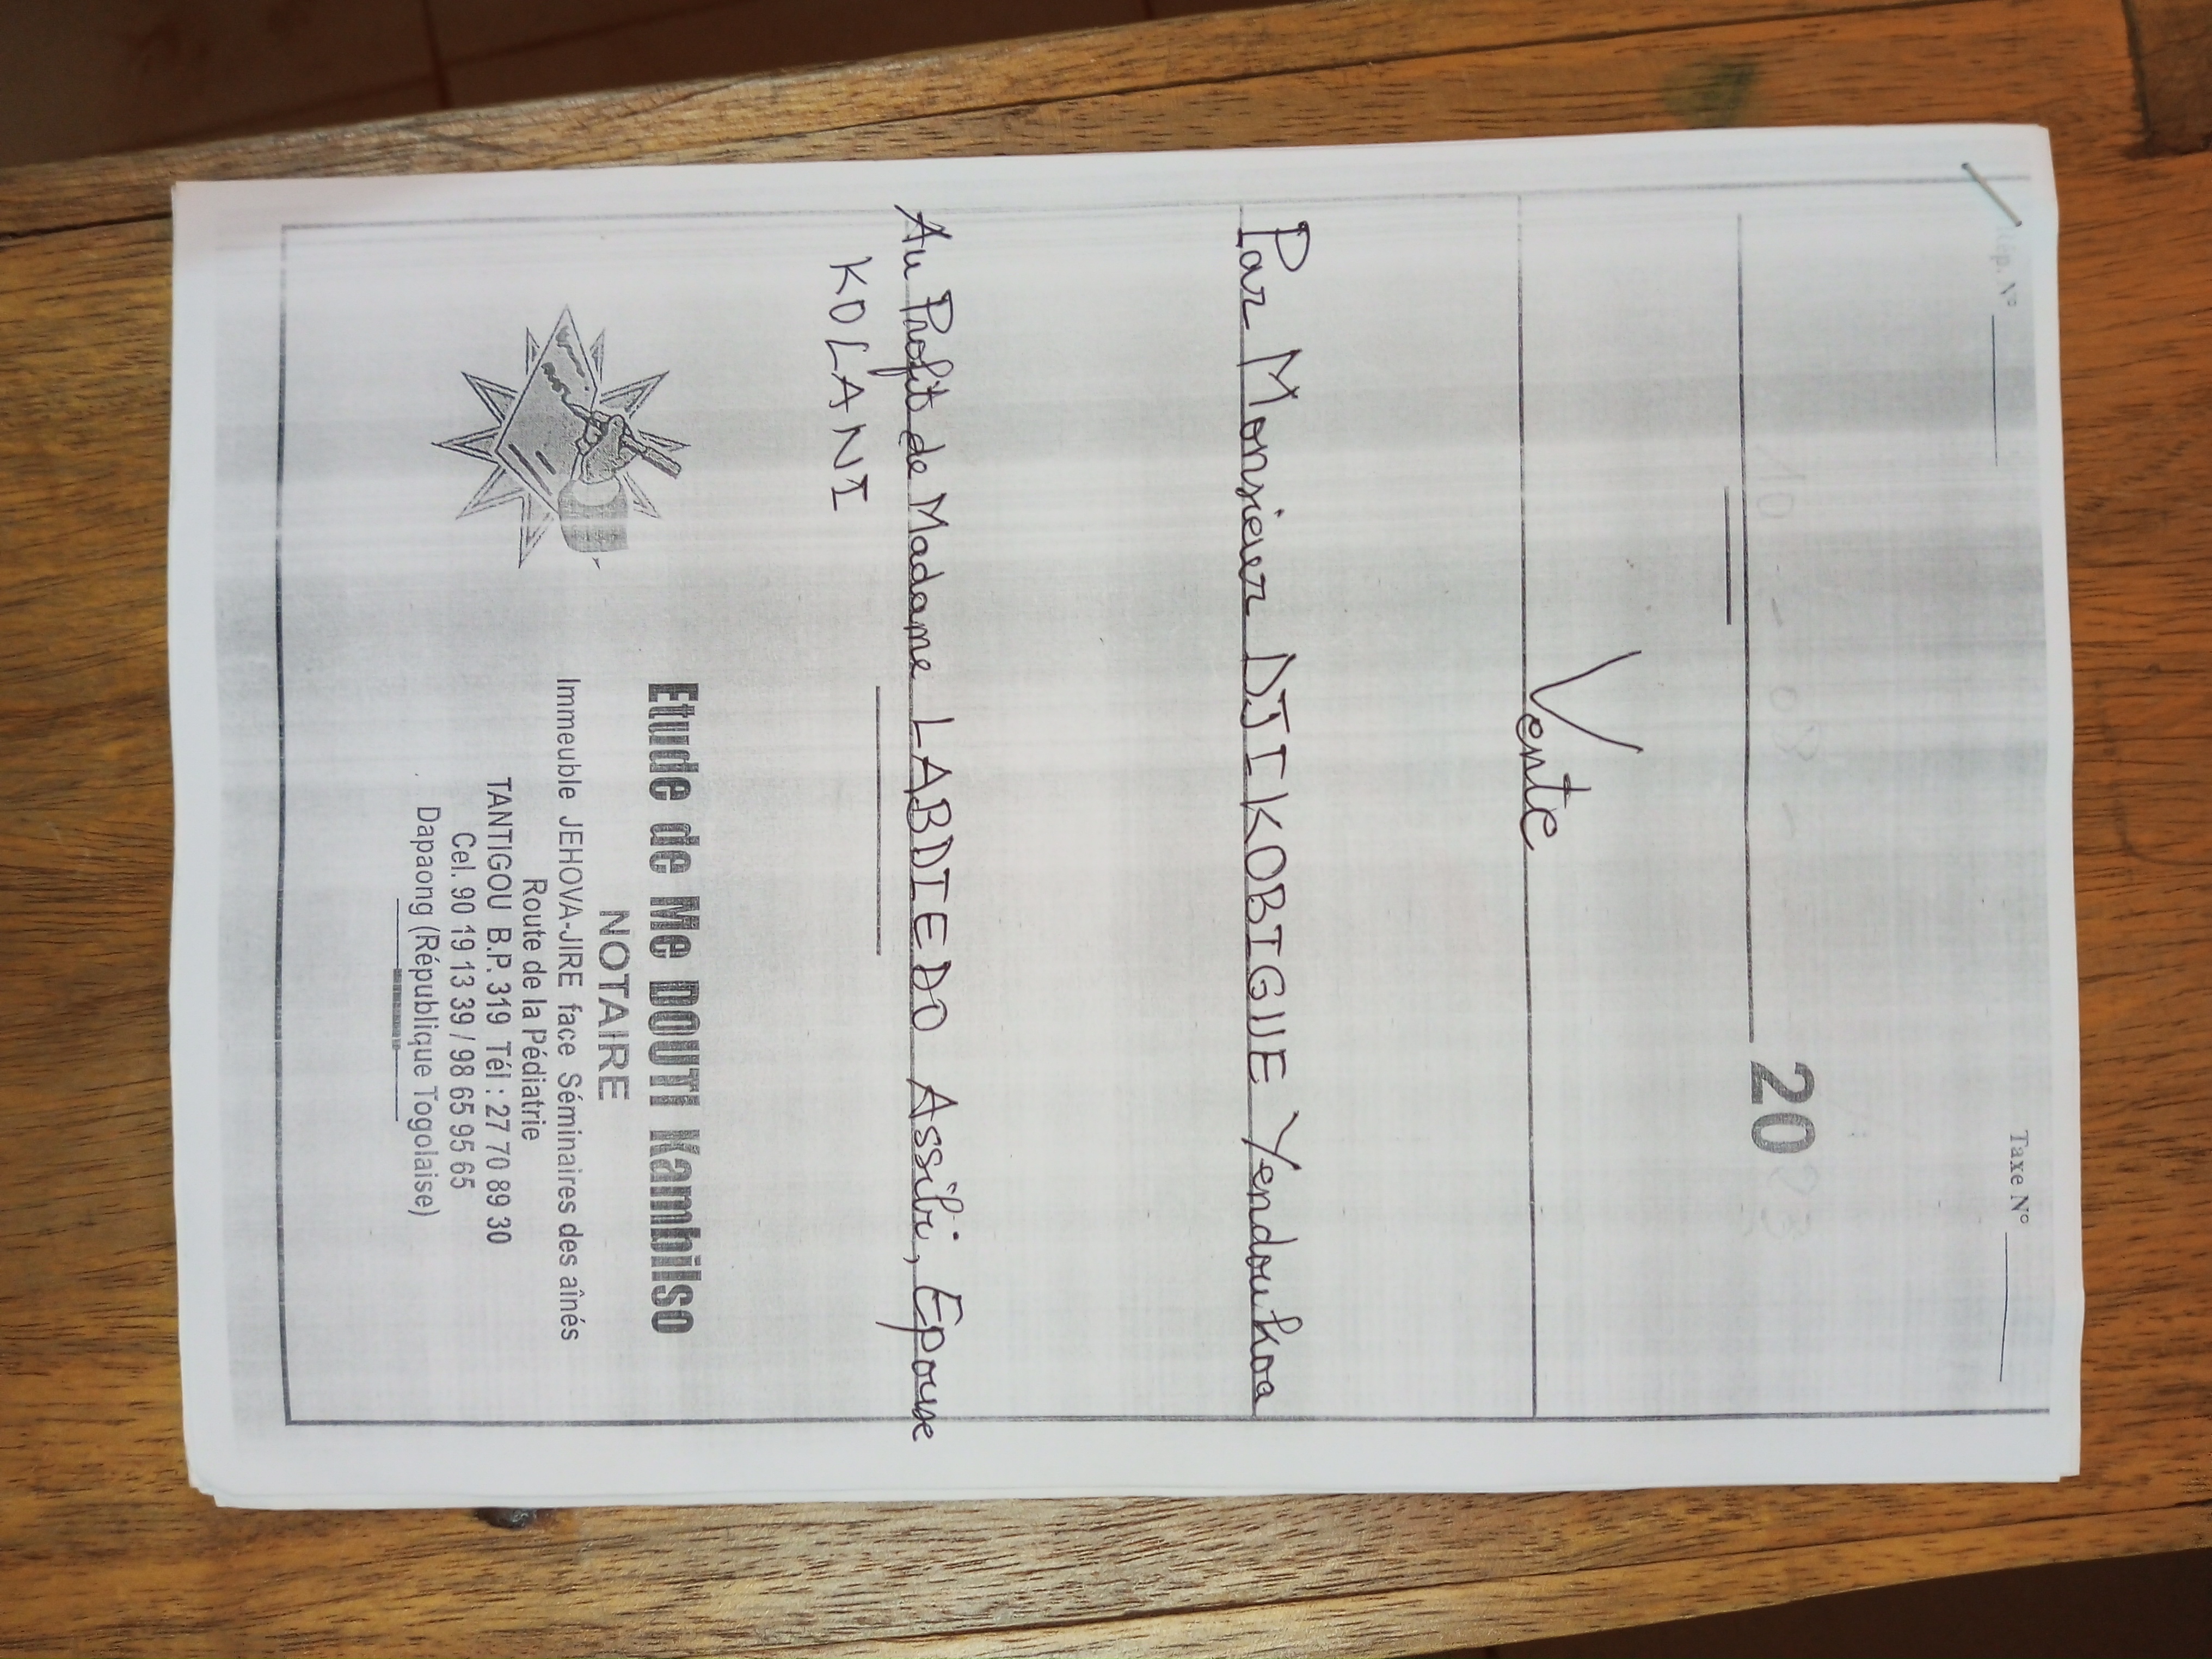 Rép. N° Taxe N°
20
Vente
Par Monsieur DJIKOBIGUE Yendoukoa
Au Profit de Madame LABDIEDO Assibi, Epouse
KOLANI
Etude de Me DOUTI Kambilso
NOTAIRE
Immeuble JEHOVA-JIRE face Séminaires des aînés
Route de la Pédiatrie
TANTIGOU B.P. 319 Tél : 27 70 89 30
Cel. 90 19 13 39 / 98 65 95 65
Dapaong (République Togolaise)